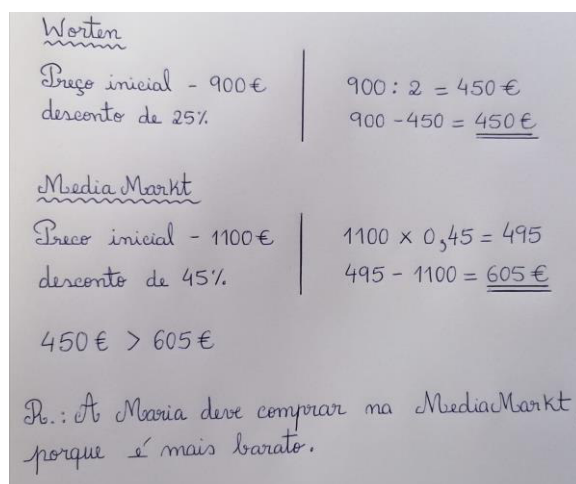 Worten
Preço inicial - 900€
desconto de 25%
900 : 2 = 450 €
900 - 450 = 450 €
Media Markt
Preco inicial - 1100€
desconto de 45%
1100 x 0,45 = 495
495 - 1100 = 605 €
450 € > 605 €
R.: A Maria deve comprar na MediaMarkt
porque é mais barato.